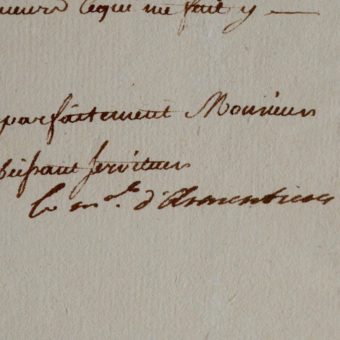 ce que me fait y —
parfaitement Monsieur
béissant serviteur
le m.al d'Armentieres